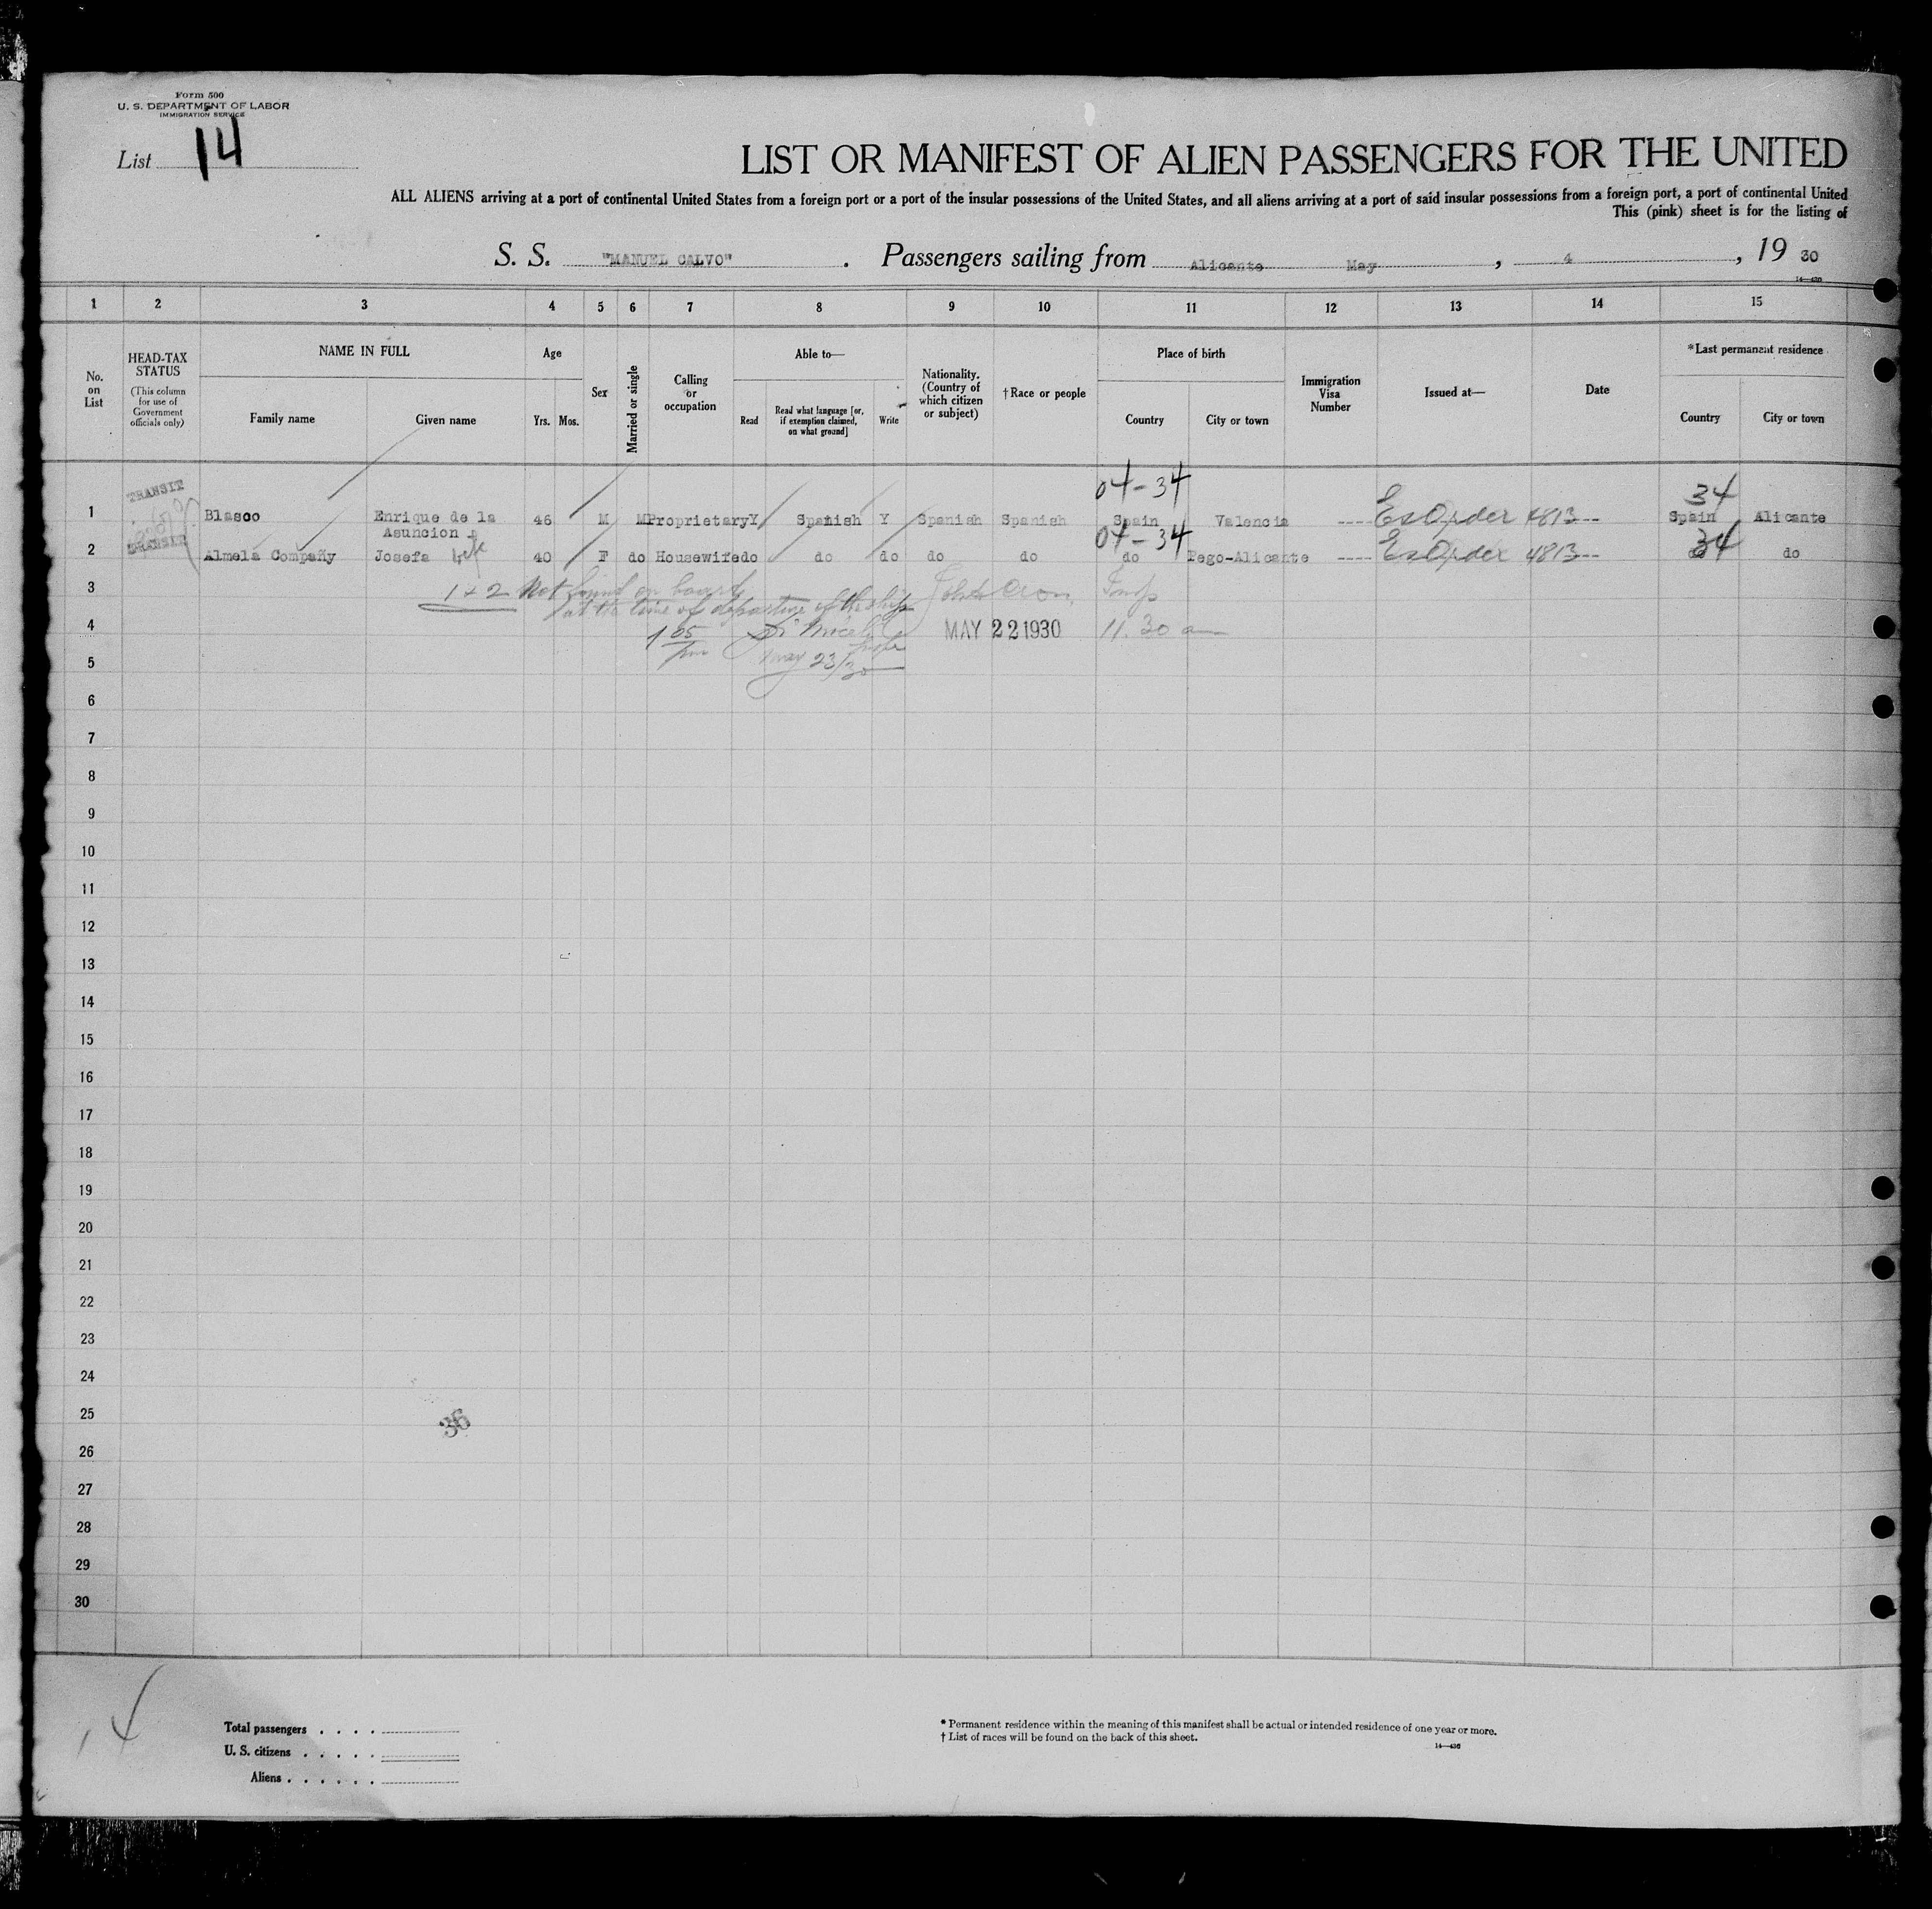 Form 500
U. S. DEPARTMENT OF LABOR
IMMIGRATION SERVICE
List 14
LIST OR MANIFEST OF ALIEN PASSENGERS FOR THE UNITED
ALL ALIENS arriving at a port of continental United States from a foreign port or a port of the insular possessions of the United States, and all aliens arriving at a port of said insular possessions from a foreign port, a port of continental United
This (pink) sheet is for the listing of
S. S. "MANUEL CALVO" . Passengers sailing from Alicante May , 4 , 19 30
14—430
1 2 3 4 5 6 7 8 9 10 11 12 13 14 15
No. on List
HEAD-TAX STATUS
(This column for use of Government officials only)
NAME IN FULL
Family name Given name
Age
Yrs. Mos.
Sex
Married or single
Calling or occupation
Able to—
Read
Read what language [or, if exemption claimed, on what ground]
Write
Nationality. (Country of which citizen or subject)
†Race or people
Place of birth
Country City or town
Immigration Visa Number
Issued at—
Date
*Last permanent residence
Country City or town
TRANSIT 04-34 34
1 Blasco Enrique de la Asuncion 46 M M Proprietary Y Spanish Y Spanish Spanish Spain Valencia ---- Ex Order 4813 -- Spain Alicante
TRANSIT 04-34 34
2 Almela Compañy Josefa wife 40 F do Housewife do do do do do do Pego-Alicante ---- Ex Order 4813 -- do do
3 1+2 Not found on board Insp
at the time of departure of the ship
4 1 05 pm MAY 22 1930 11.30 a
5 May 23/30
6
7
8
9
10
11
12
13
14
15
16
17
18
19
20
21
22
23
24
25
36
26
27
28
29
30
Total passengers . . . .
U. S. citizens . . . . .
Aliens . . . . . .
* Permanent residence within the meaning of this manifest shall be actual or intended residence of one year or more.
† List of races will be found on the back of this sheet.
14—430